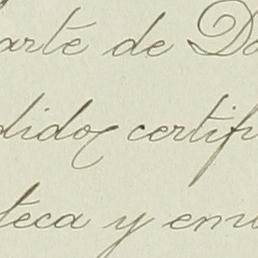 arte de D
didos certifi
teca y em